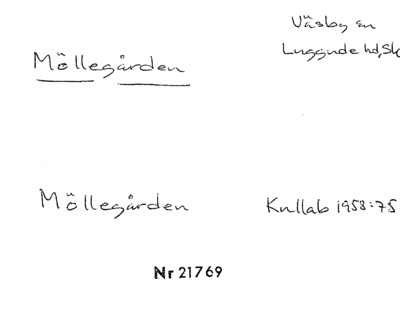 Väsby sn
Möllegården
Luggude hd, Sk
Möllegården
Kullab 1958:75
Nr 21769